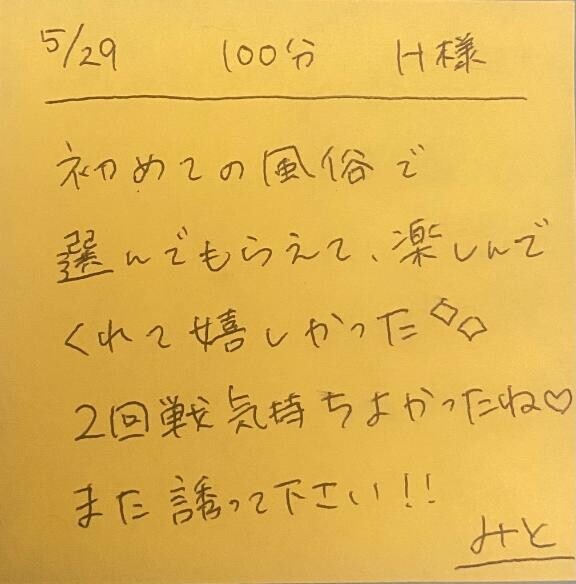 5/29 100分 H様
初めての風俗で
選んでもらえて、楽しんで
くれて嬉しかった
2回戦気持ちよかったね♡
また誘って下さい!!
みと